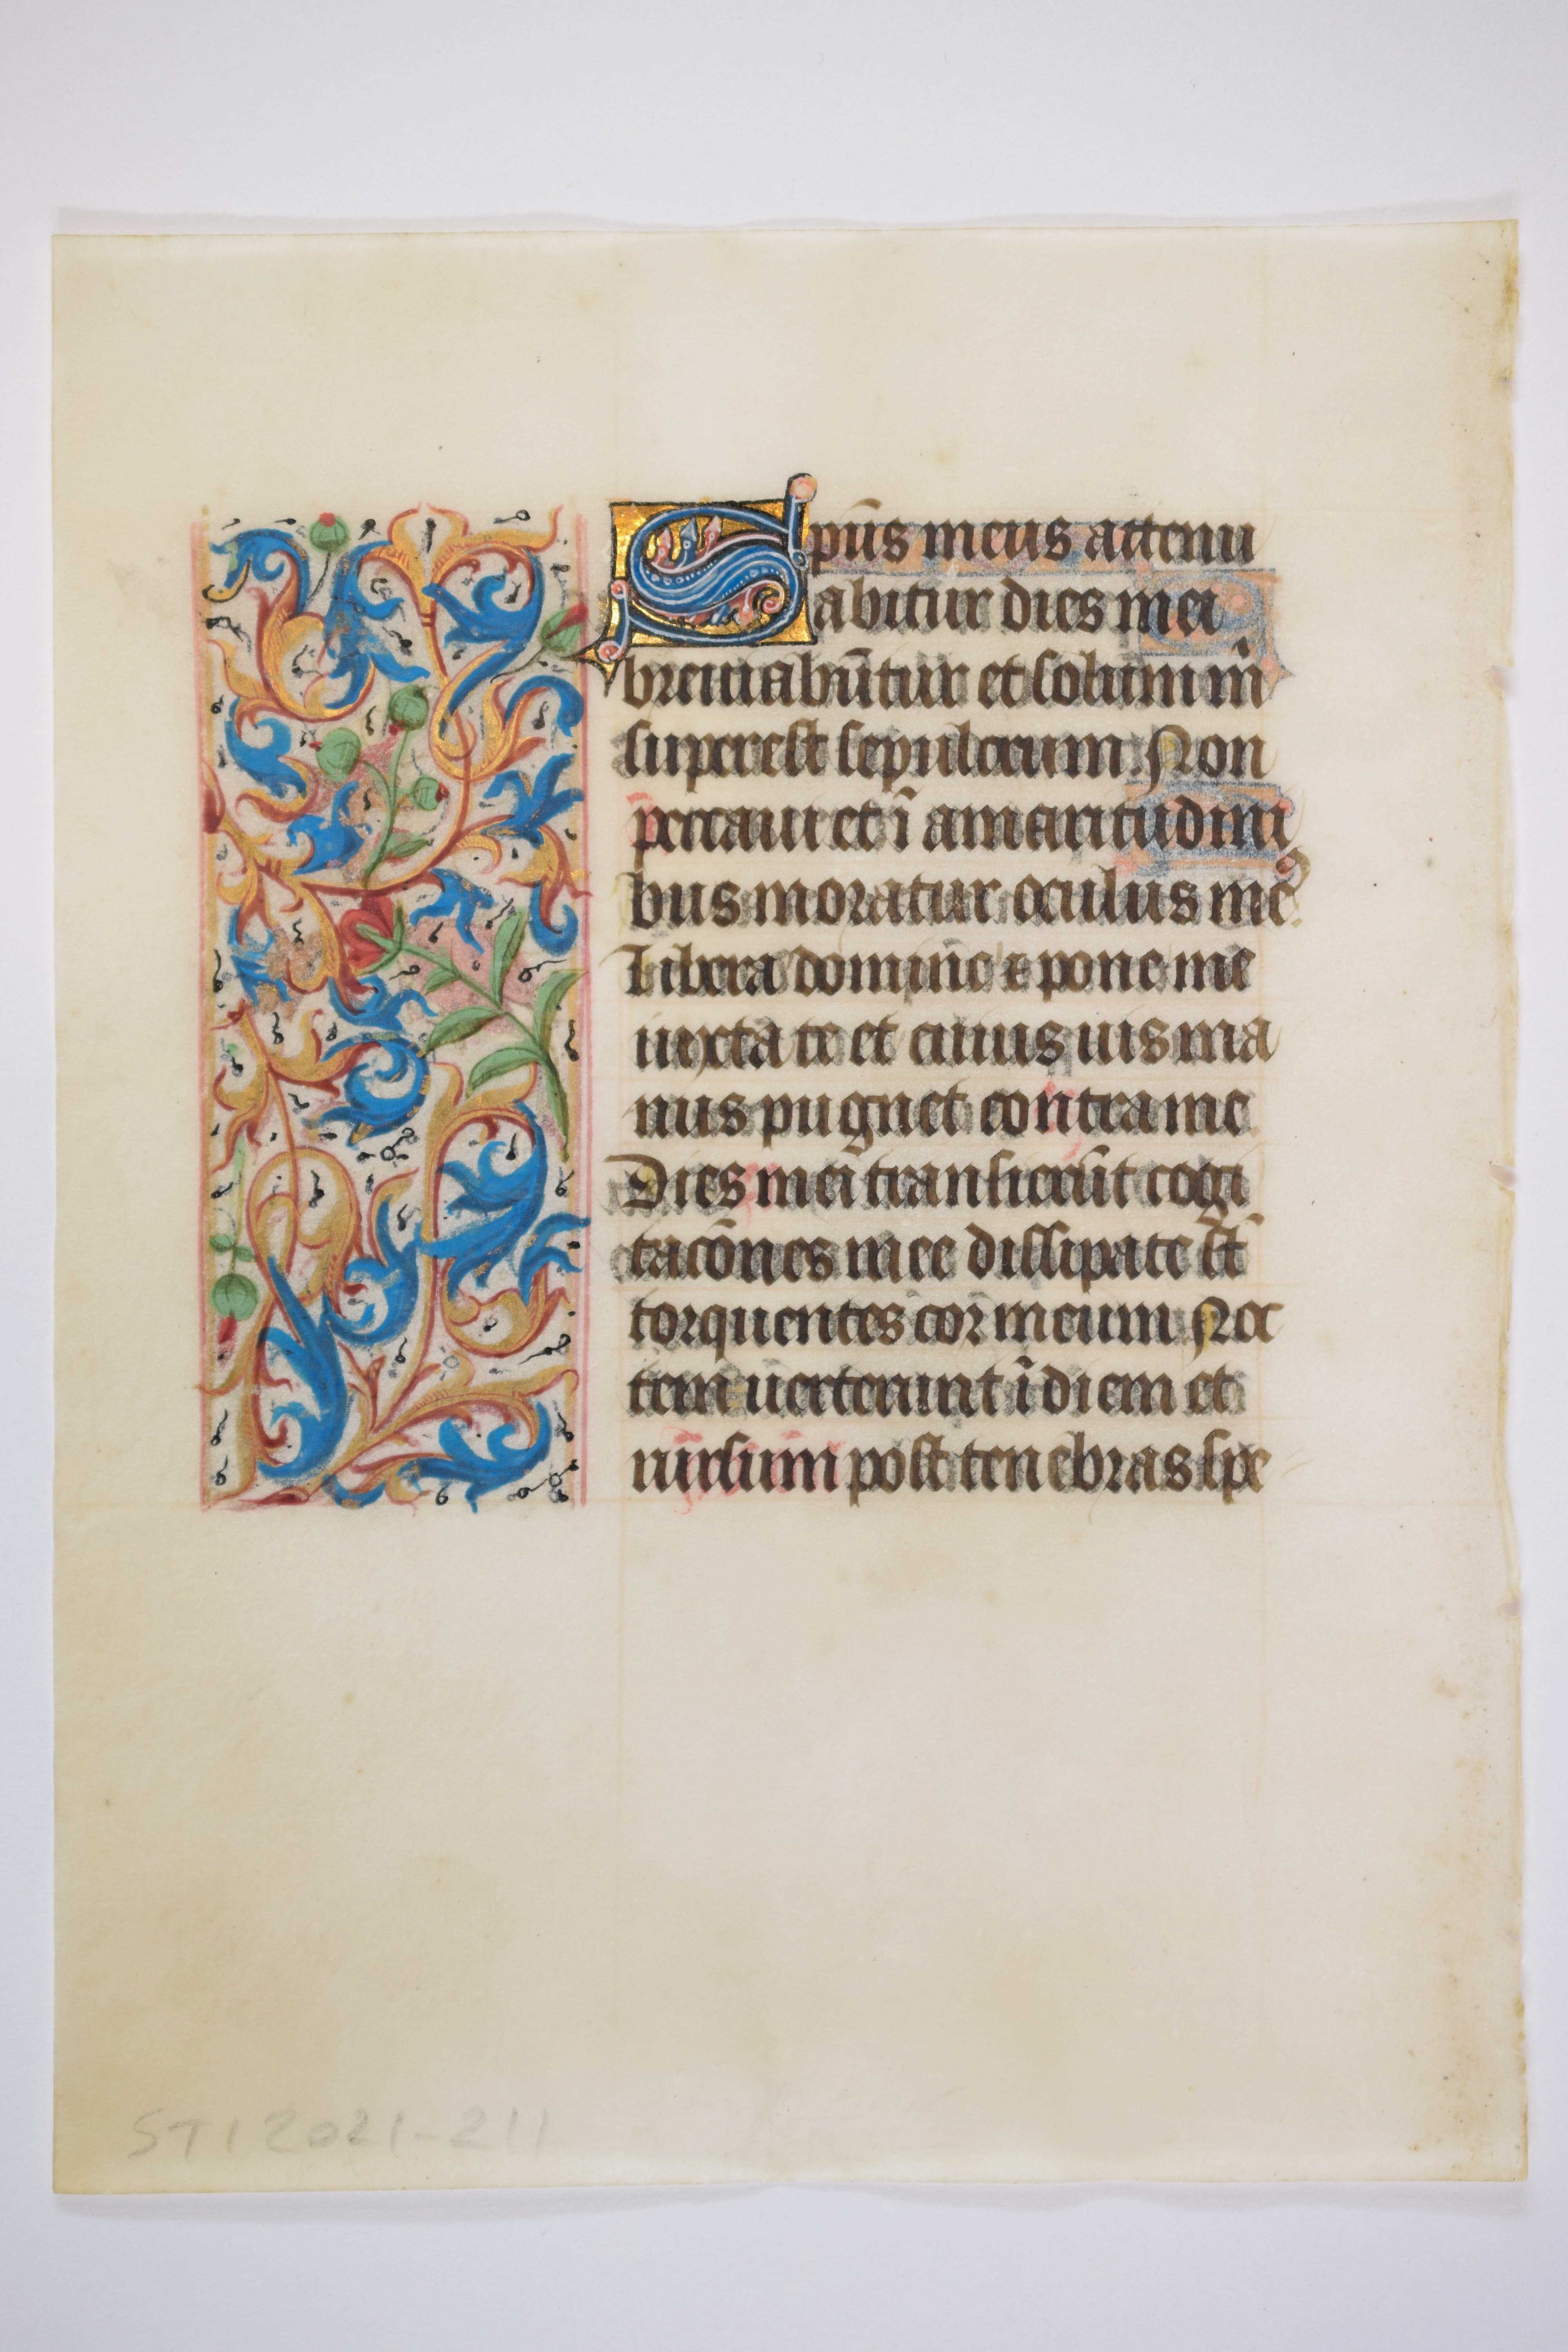 Spūs meus attenu
abitur dies mei
breuiabūtur et solum m̄
superest sepulcrum. Non
peccaui et ī amaritudini
bus moratur oculus meꝰ.
Libera domine ⁊ pone me
iuxta te et cuius uis ma
nus pugnet contra me
Dies mei transierūt cogi
tacōnes mee dissipate sūt
torquentes cor meum Noc
tem uerterunt ī diem et
rursum post tenebras spe
STI 2021-211